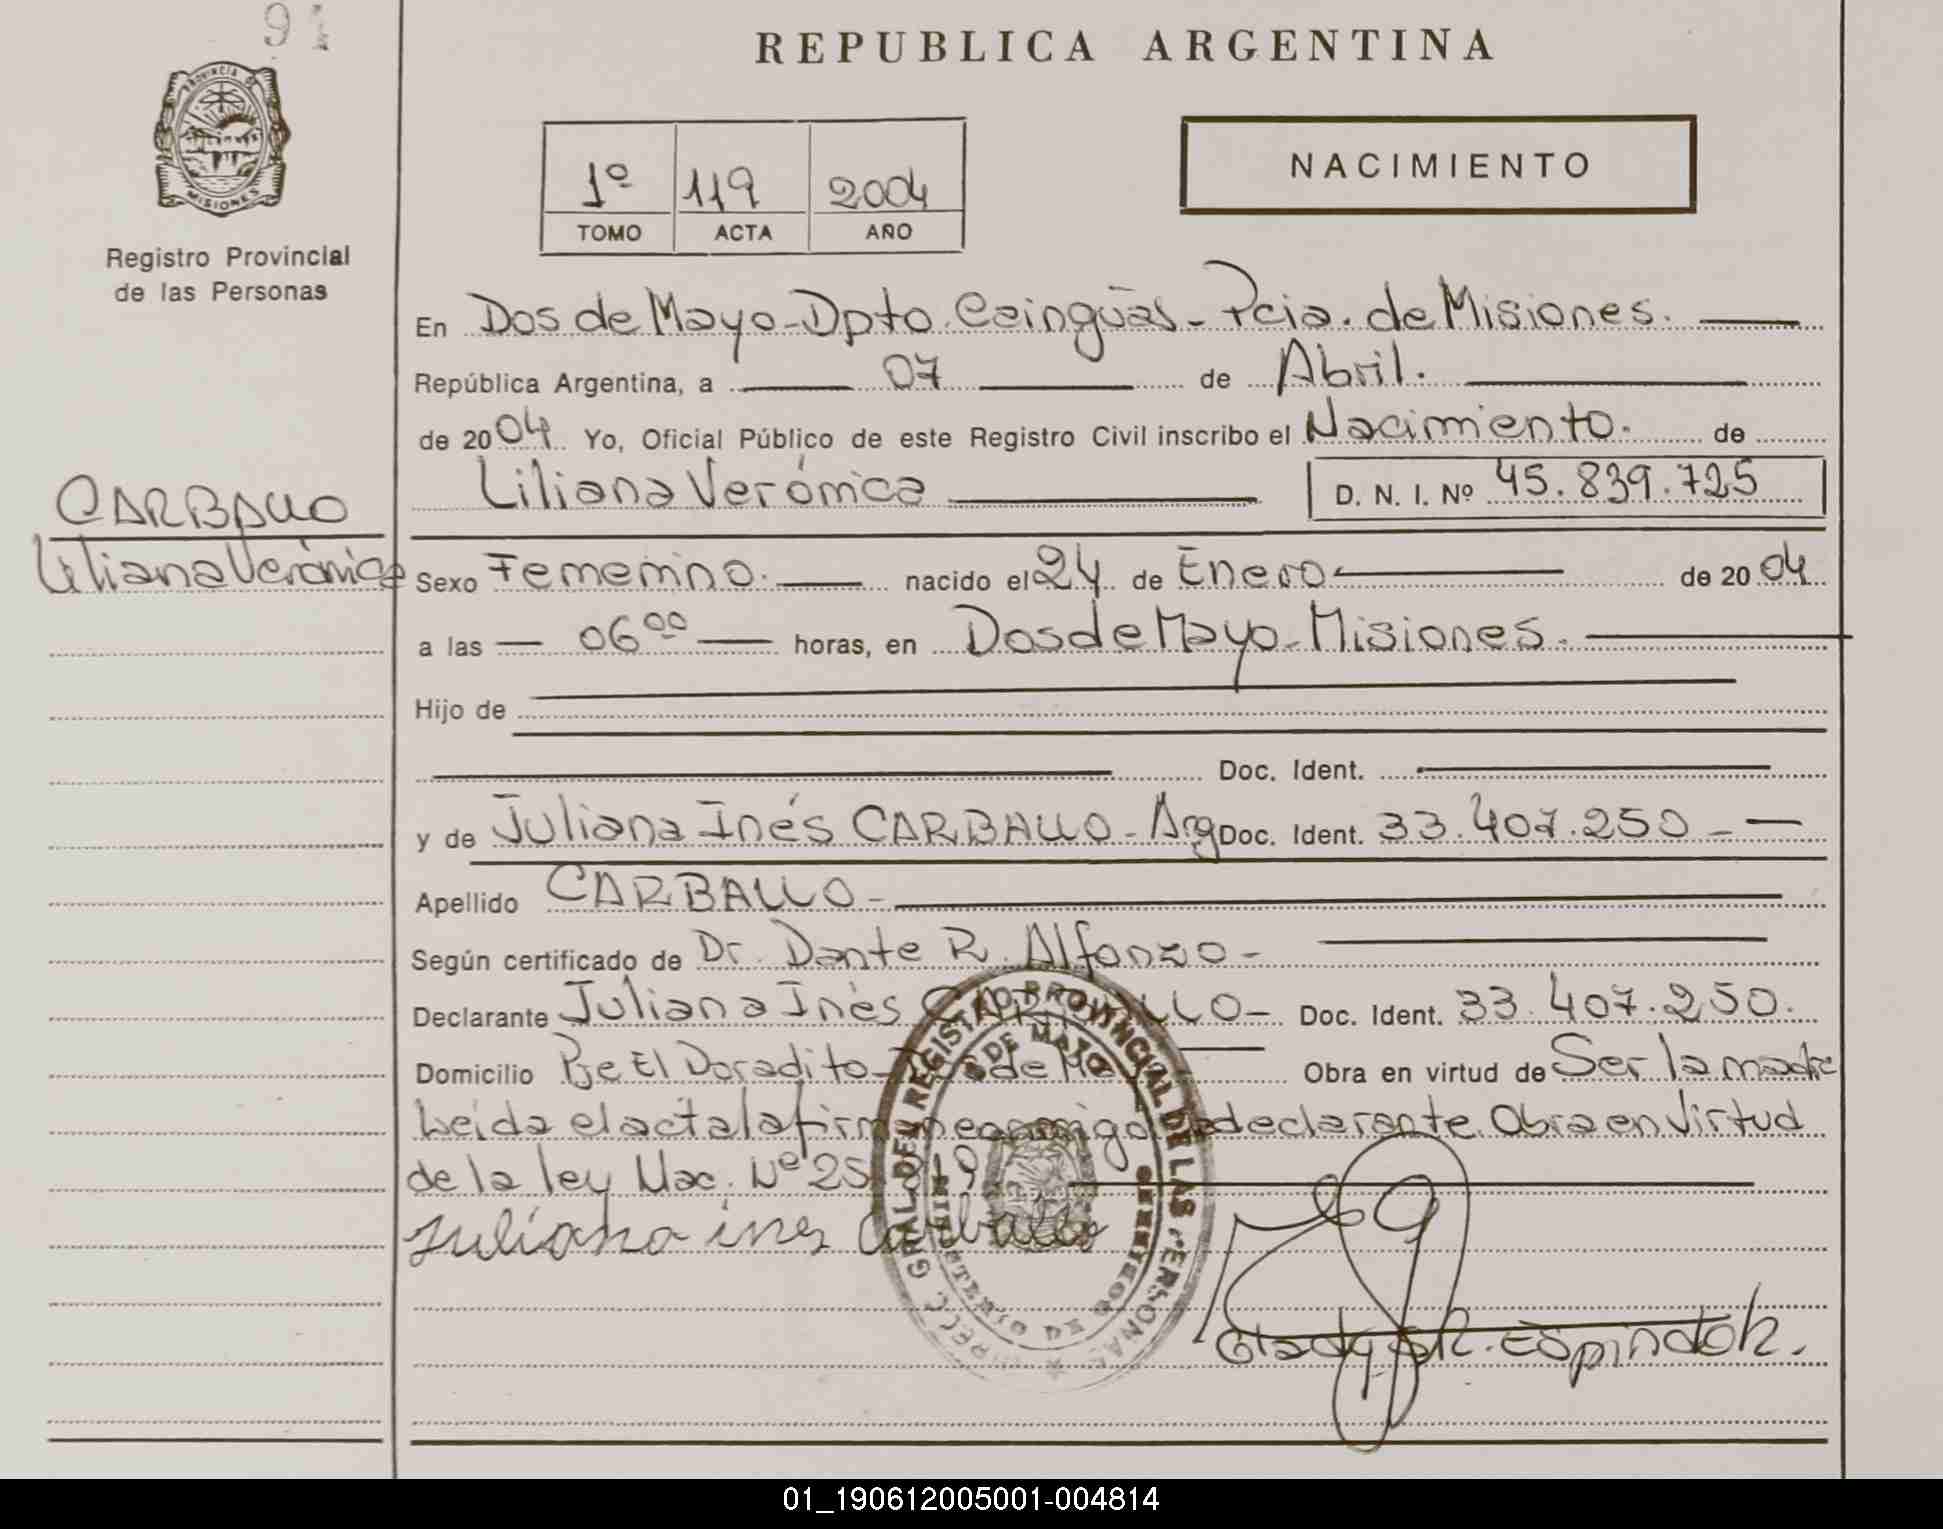 91
REPUBLICA ARGENTINA
PROVINCIA DE MISIONES
Registro Provincial
de las Personas
1º 119 2004
TOMO ACTA AÑO
NACIMIENTO
En Dos de Mayo - Dpto. Cainguas - Pcia. de Misiones.
República Argentina, a 07 de Abril.
de 2004 Yo, Oficial Público de este Registro Civil inscribo el Nacimiento. de
Liliana Verónica D. N. I. Nº 45.839.725
CARBALLO
Liliana Verónica
Sexo Femenino. nacido el 24 de Enero de 2004
a las 06 00 horas, en Dos de Mayo - Misiones.
Hijo de
Doc. Ident.
y de Juliana Inés CARBALLO - Arg Doc. Ident. 33.407.250 -
Apellido CARBALLO -
Según certificado de Dr. Dante R. Alfonzo -
Declarante Juliana Inés CARBALLO - Doc. Ident. 33.407.250.
Domicilio Pje El Doradito - Dos de Mayo Obra en virtud de Ser la madre
Leída el acta la firma conmigo la declarante. Obra en Virtud
de la ley Nac. Nº 25.819
Juliana ines Carballo
GRAL DEL REGISTRO PROVINCIAL DE LAS PERSONAS
DOS DE MAYO
MINISTERIO DE GOBIERNO
Gladys R. Espindola.
01_190612005001-004814